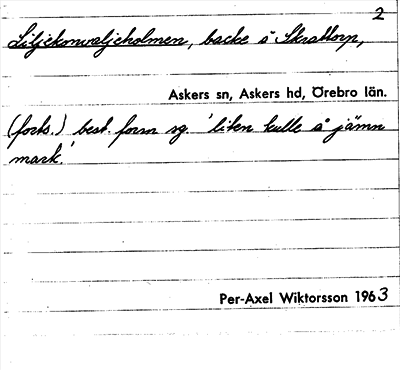 2
Liljekonvaljeholmen, backe å Skrattorp,
Askers sn, Askers hd, Örebro län.
(forts.) best. form sg. 'liten kulle å jämn
mark.'
Per-Axel Wiktorsson 1963